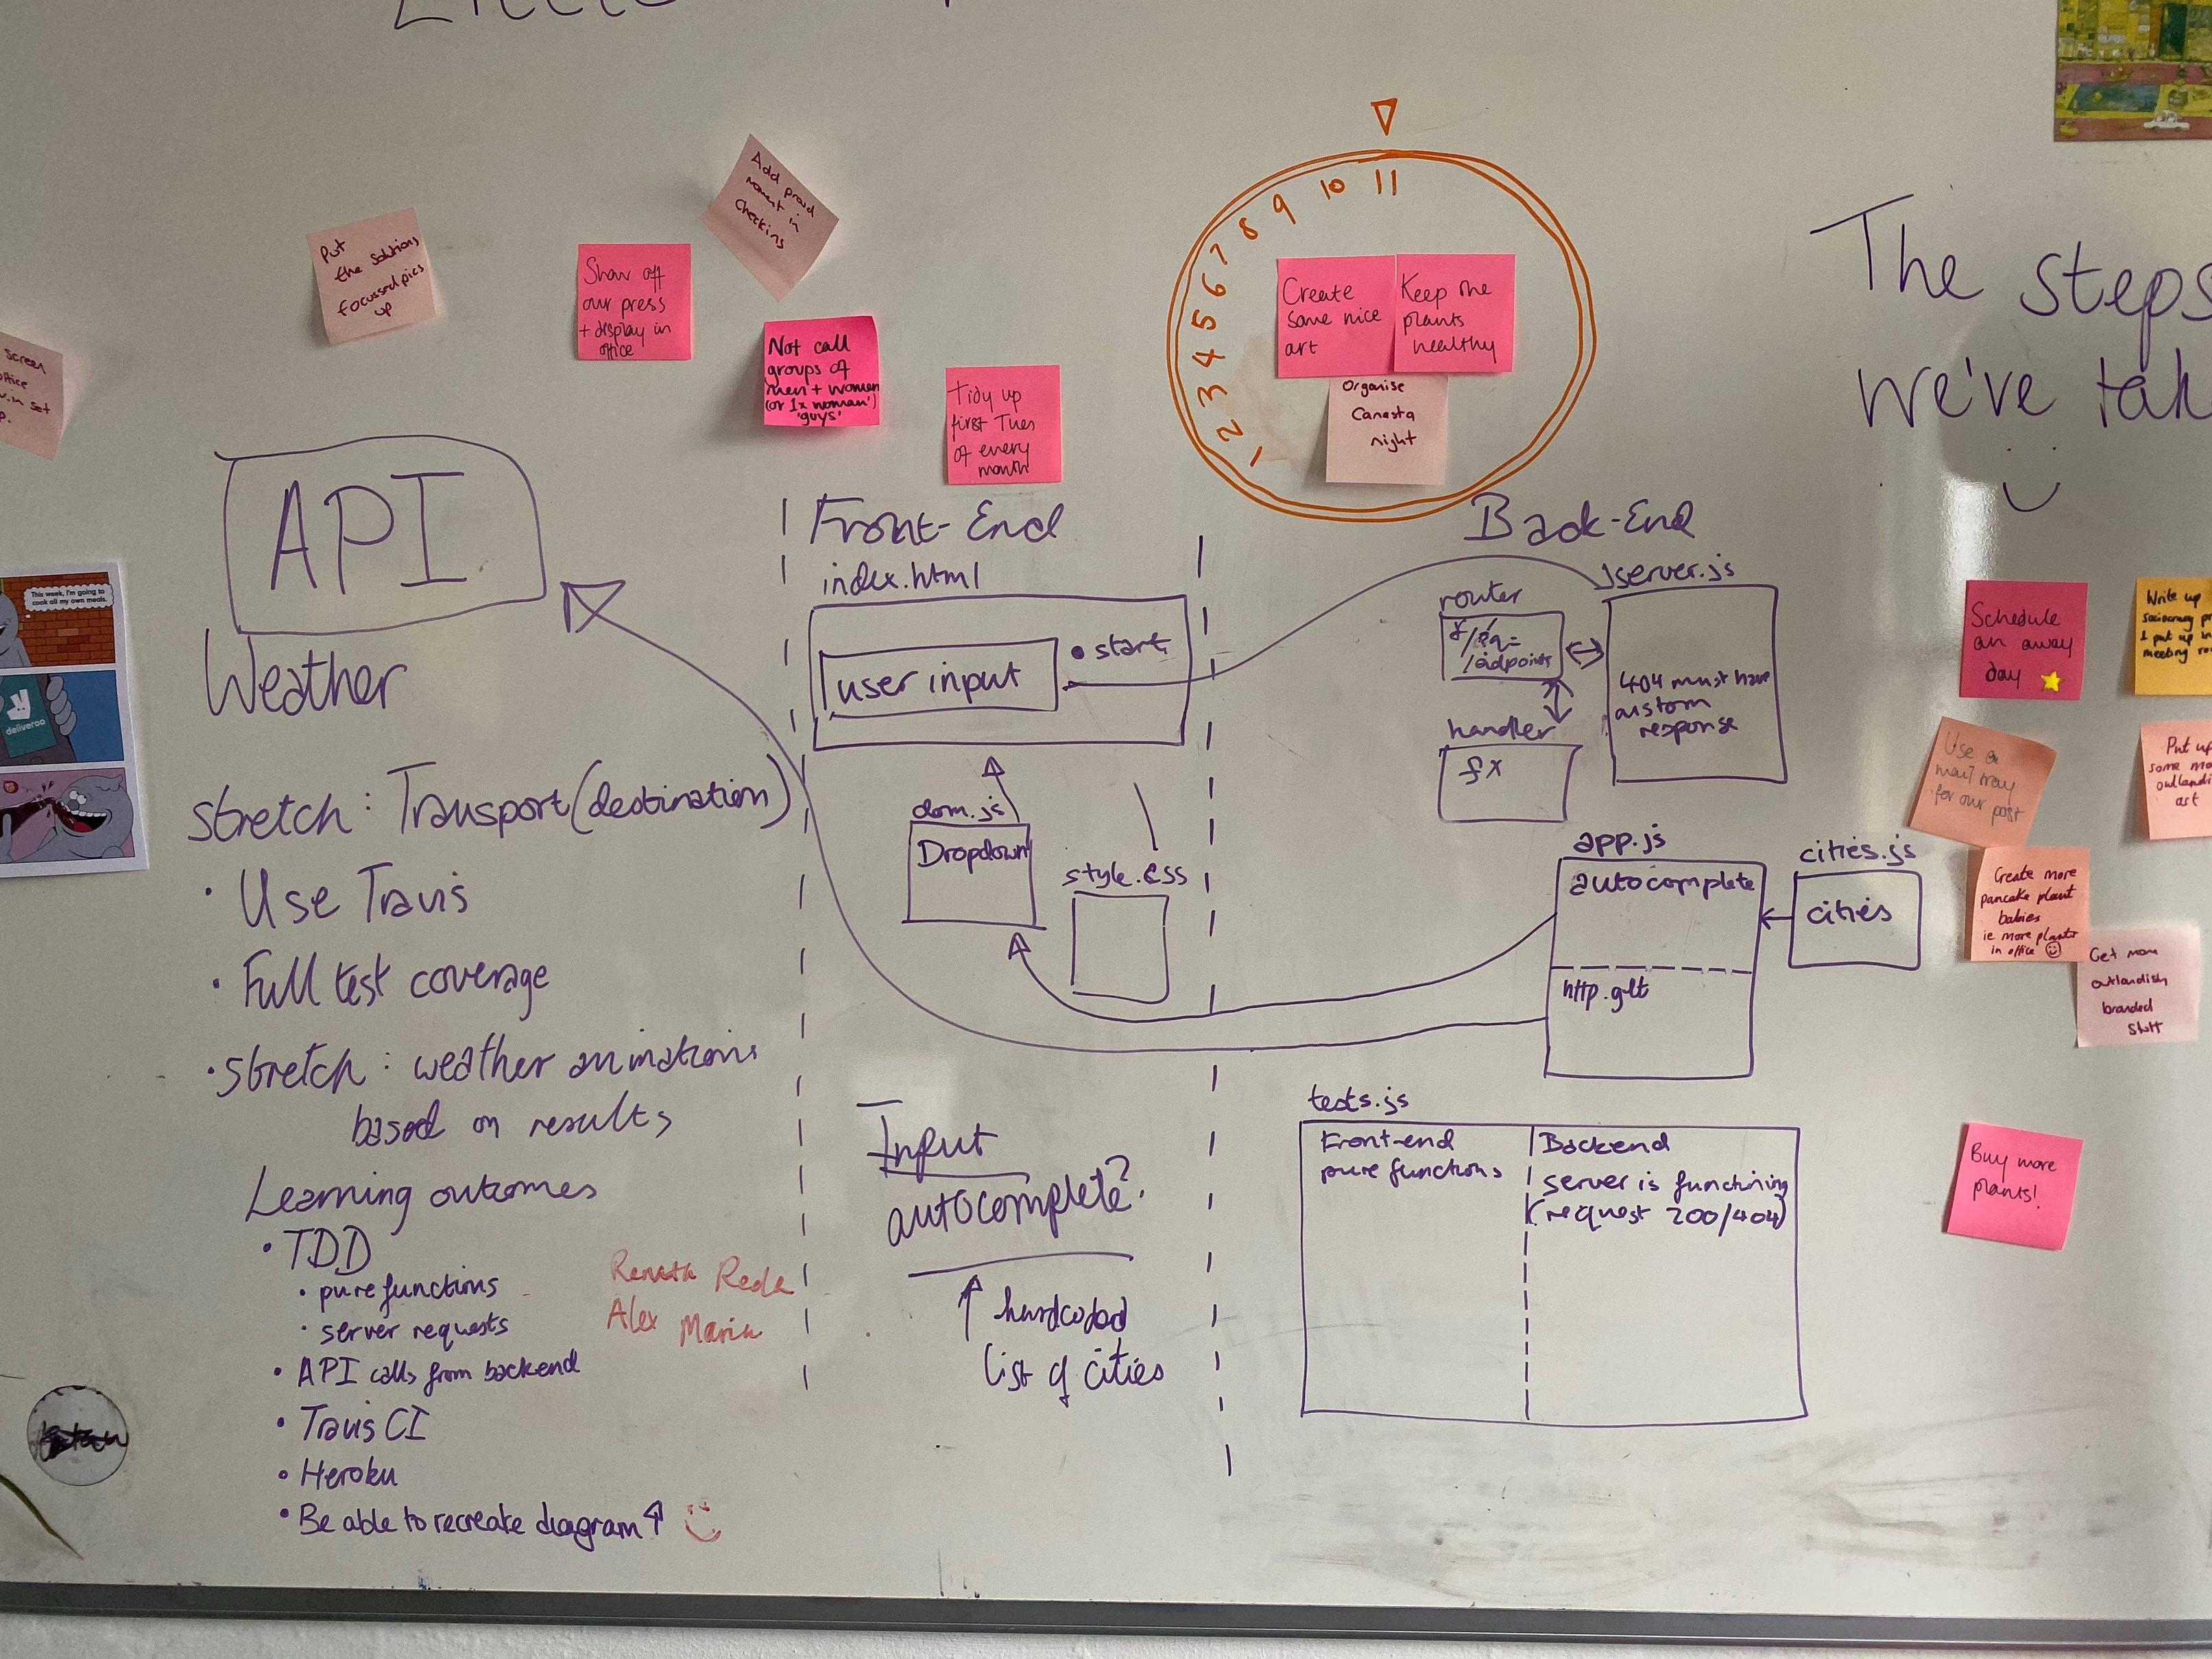 Put
the solutions
focussed pics
up
Show off
our press
+ display in
office
Add proud
moment in
checkins
Not call
groups of
men + women
(or 1x woman')
'guys'
Tidy up
first Tues
of every
month
Screen
1 2 3 4 5 6 7 8 9 10 11
Create
some nice
art
Keep the
plants
healthy
Organise
Canasta
night
The steps
we've
API
Weather
stretch: Transport (destination)
• Use Travis
• Full test coverage
• stretch: weather animations
based on results
Learning outcomes
• TDD
• pure functions
• server requests
• API calls from backend
• Travis CI
• Heroku
• Be able to recreate diagram
Alex Maria
This week, I'm going to
cook all my own meals.
deliveroo
Front-End
index.html
user input
• start
dom.js
Dropdown
style.css
Input
autocomplete?
hardcoded
list of cities
Back-End
router
/endpoints
server.js
404 must have
custom
response
handler
fx
app.js
autocomplete
http.get
cities.js
cities
tests.js
Front-end
pure functions
Backend
server is functioning
(request 200/404)
Schedule
an away
day
Write up
I put up in
meeting
Use a
mail tray
for our post
Put up
some
art
Create more
pancake plant
babies
ie more plants
in office
Get more
outlandish
branded
stuff
Buy more
plants!